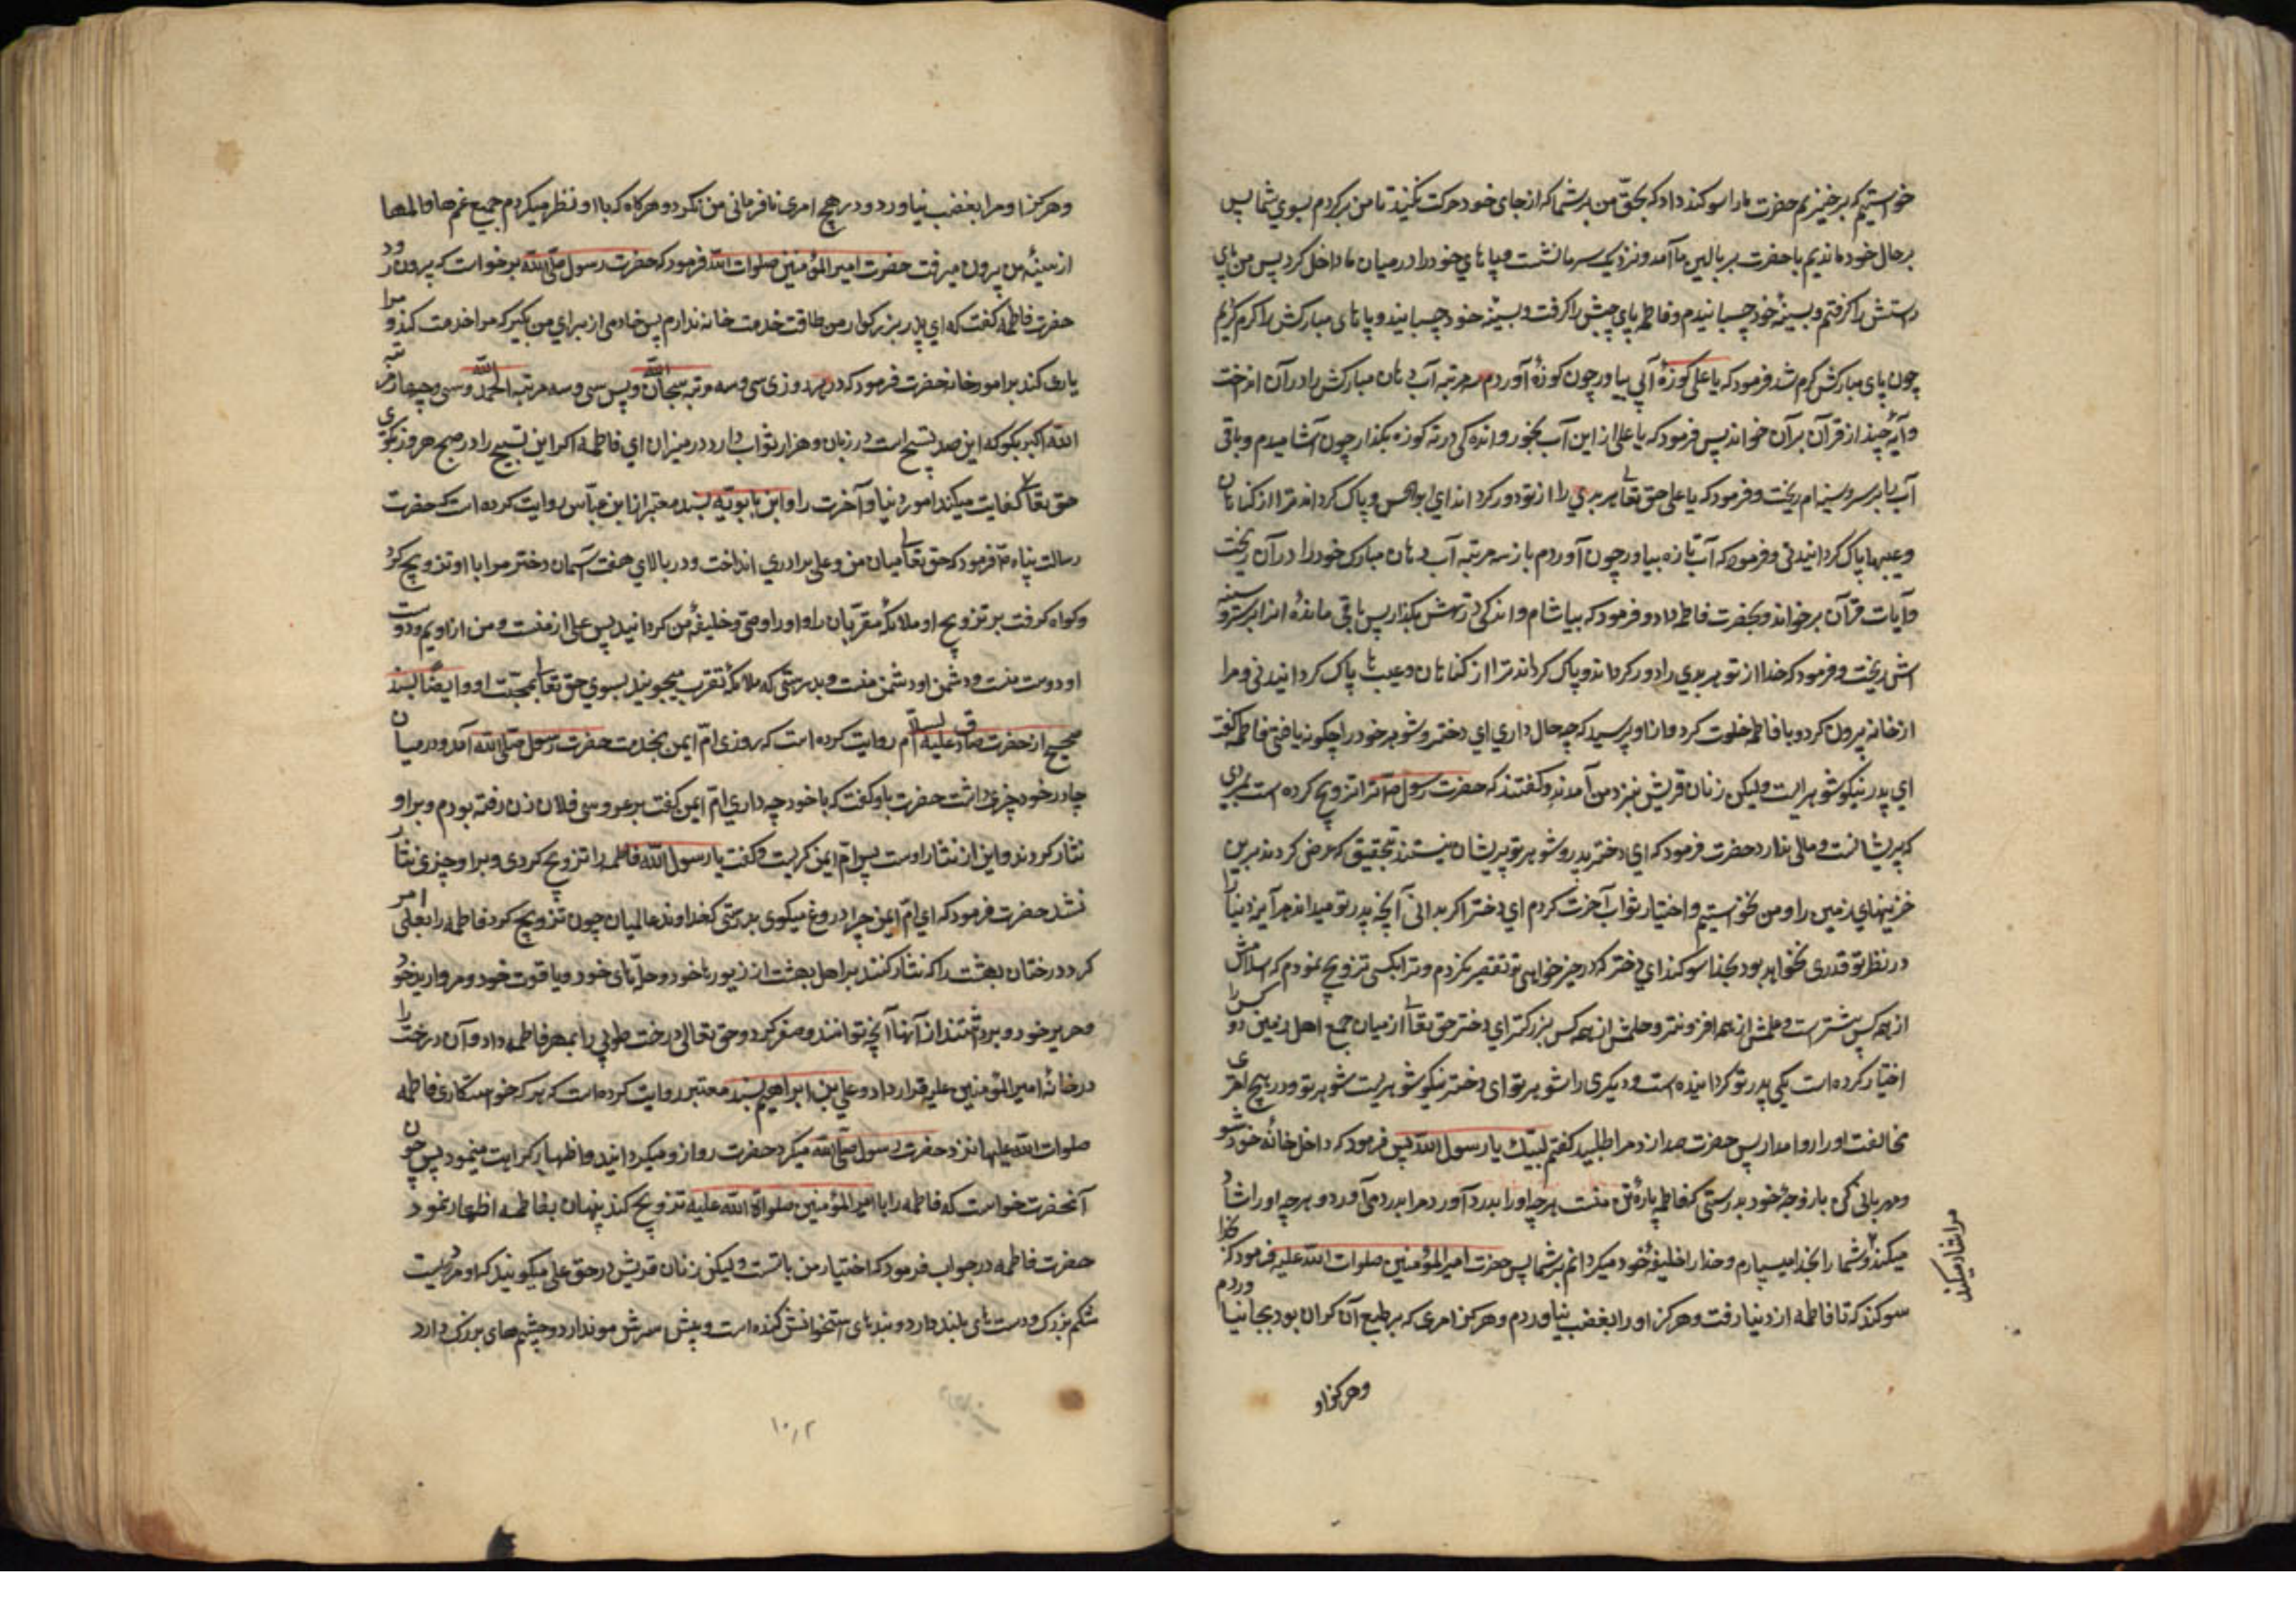 خواستیم که برخیزیم حضرت ما را سوکند داد که بحقّ من بر شما که از جای خود حرکت نکنید تا من برکردم بسوي شما پس
بر حال خود ماندیم تا حضرت بر بالین ما آمد و نزدیک سر ما نشست و پاهاي خود را در میان ما داخل کرد پس من پای
راستش را کرفتم و بسینهٔ خود چسبانیدم و فاطمه پای چپش را کرفت و بسینهٔ خود چسبانید و پاهای مبارکش را کرم کردیم
چون پای مبارکش کرم شد فرمود که یا علی کوزهٔ آبی بیاور چون کوزهٔ آوردم سه مرتبه آب دهان مبارکش را در آن انداخت
و آیهٔ چند از قرآن بر آن خواند پس فرمود که یا علی از این آب بخور و اندکی در ته کوزه بکذار چون آشامیدم و باقی
آب را بر سر و سینه‌ام ریخت و فرمود که یا علی حق تعالی هر بدي را از تو دور کرداند اي ابوالحسن و پاک کرداند ترا از کناهان
و عیبها پاک کردانیدنی و فرمود که آب تازه بیاور چون آوردم باز سه مرتبه آب دهان مبارک خود را در آن ریخت
و آیات قرآن بر خواند و بحضرت فاطمه داد و فرمود که بیاشام و اندکی در تهش بکذار پس باقی مانده را بر سر و سینه
اش ریخت و فرمود که خدا از تو هر بدي را دور کرداند و پاک کرداند ترا از کناهان و عیبها پاک کردانیدنی و مرا
از خانه بیرون کرد و با فاطمه خلوت کرد و از او پرسید که چه حال داري اي دختر و شوهر خود را چکونه یافتی فاطمه کفت
اي پدر نیکو شوهریست ولیکن زنان قریش نزد من آمدند و کفتند که حضرت رسول ص ترا تزویج کرده است بمردی
که پریشانست و مالی ندارد حضرت فرمود که اي دختر پدر و شوهر تو پریشان نیستند بتحقیق که عرض کردند بر من
خزینهاي زمین را و من نخواستم و اختیار ثواب آخرت کردم اي دختر اکر بدانی آنچه پدر تو میداند هر آینه دنیا
در نظر تو قدری نخواهد بود بخدا سوکند اي دختر که در خیرخواهی تو تقصیر نکردم و ترا بکسی تزویج نمودم که اسلامش
از همه کس پیشتر است و علمش از همه افزونتر و حلمش از همه کس بزرکتر اي دختر حق تعالی از میان جمیع اهل زمین دو کس را
اختیار کرده است یکی پدر تو کردانیده است و دیکری را شوهر تو ای دختر نیکو شوهریست شوهر تو و در هیچ امری
مخالفت او را روا مدار پس حضرت صدا زد مرا طلبید کفتم لبّیک یا رسول الله پس فرمود که داخل خانهٔ خود شو
و مهربانی کن با زوجهٔ خود بدرستی که فاطمه پارهٔ تن منست هر چه او را بدرد آورد مرا بدرد می‌آورد و هر چه او را شاد
میکند و شما را بخدا میسپارم و خدا را خلیفهٔ خود میکردانم بر شما پس حضرت امیر المؤمنین صلوات الله علیه فرمود که بخدا
سوکند که تا فاطمه از دنیا رفت و هرکز او را بغضب نیاوردم و هرکز امری که بر طبع آن کران بود بجا نیاوردم
مرا شاد میکند
و هرکز او
و هرکز او مرا بغضب نیاورد و در هیچ امری نافرمانی من نکرد و هرکاه که با او نظر میکردم جمیع غمها و المها
از سینهٔ من بیرون میرفت حضرت امیر المؤمنین صلوات الله فرمود که حضرت رسول صلّی الله برخواست که بیرون رود
حضرت فاطمه کفت که اي پدر بزرکوار من طاقت خدمت خانه ندارم پس خادمی از براي من بکیر که مرا خدمت کند و مرا
یاری کند بر امور خانه حضرت فرمود که در هر روزی سی و سه مرتبه سبحان الله و پس سی و سه مرتبه الحمد الله و سی و چهار مرتبه
الله اکبر بکو که این صد تسبیح است در زبان و هزار ثواب دارد در میزان اي فاطمه اکر این تسبیح را در صبح هر روز بکوی
حق تعالی کفایت میکند امور دنیا و آخرت را و ابن بابویه بسند معتبر از ابن عبّاس روایت کرده است که حضرت
رسالت پناه ص فرمود که حق تعالی میان من و علی برادري انداخت و در بالاي هفت آسمان دختر مرا با او تزویج کرد
و کواه کرفت بر تزویج او ملائکهٔ مقرّبان را و او را وصی و خلیفهٔ من کردانید پس علی از منست و من از اویم و دوست
او دوست منست و دشمن او دشمن منست و بدرستی که ملائکه تقرب میجویند بسوي حق تعالی بمحبّت او و ایضًا بسند
صحیح از حضرت صادق علیه السلام روایت کرده است که روزی امّ ایمن بخدمت حضرت رسول صلّی الله آمد و در میان
چادر خود چیزی داشت حضرت باو کفت که با خود چه داري امّ ایمن کفت بر عروسی فلان زن رفته بودم و بر او
نثار کردند و این از نثار اوست پس امّ ایمن کریست و کفت یا رسول الله فاطمه را تزویج کردی و بر او چیزی نثار
نشد حضرت فرمود که اي امّ ایمن چرا دروغ میکوی بدرستی که خداوند عالمیان چون تزویج کرد فاطمه را بعلی امر
کرد درختان بهشت را که نثار کنند بر اهل بهشت از زیورها خود و حلّهای خود و یاقوت خود و مروارید خود
و حریر خود و برداشتند از آنها آنچه توانند وصف کرد و حق تعالی درخت طوبی را بمهر فاطمه داد و آن درخت را
در خانهٔ امیر المؤمنین علیه قرار داد و علی بن ابراهیم بسند معتبر روایت کرده است که هر که خواستکاری فاطمه
صلوات الله علیها نزد حضرت رسول صلّی الله میکرد حضرت رو از و میکردانید و اظهار کراهت مینمود پس چون
آنحضرت خواست که فاطمه را با امیر المؤمنین صلواة الله علیه تزویج کند پنهان بفاطمه اظهار نمود
حضرت فاطمه در جواب فرمود که اختیار من با تست ولیکن زنان قریش در حق علی میکویند که او مردیست
شکم بزرک و دست‌های بلند دارد و بندهای استخوانش کنده است و پیش سرش مو ندارد و چشمهای بزرک دارد
۱۰۲